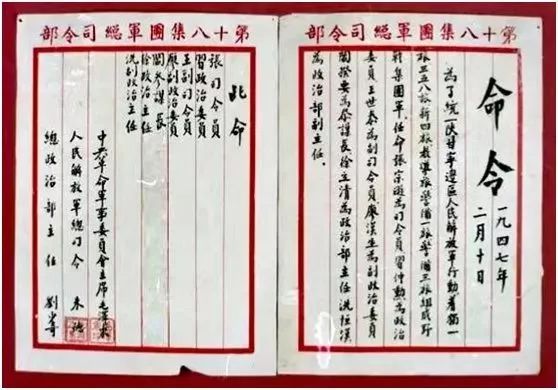 第十八集團軍總司令部
命令
一九四七年
二月十日
為了統一陕甘寧邊區人民解放軍行動着獨一
旅三五八旅新四旅教導旅警備一旅警備三旅組成野
戰集團軍。任命張宗遜為司令員習仲勳為政治
委員王世泰為副司令員廖漢生為副政治委員
閻揆要為參謀長徐立清為政治部主任冼恒漢
為政治部副主任.
第十八集團軍總司令部
此命
張司令員
習政治委員
王副司令員
廖副政治委員
閻參謀長
徐政治主任
冼副政治主任
中央革命軍事委員會主席毛澤東
人民解放軍總司令 朱德
總政治部主任 劉少奇